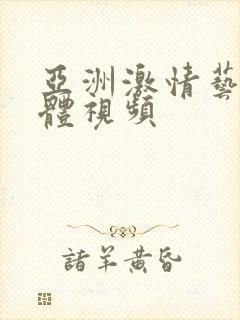 亞洲激情藝
體視頻
諸羊黃昏